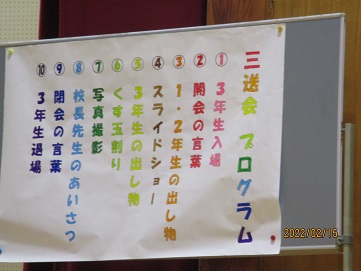 三送会 プログラム
① 3年生入場
② 開会の言葉
③ 1・2年生の出し物
④ スライドショー
⑤ 3年生の出し物
⑥ くす玉割り
⑦ 写真撮影
⑧ 校長先生のあいさつ
⑨ 閉会の言葉
⑩ 3年生退場
2022/02/15